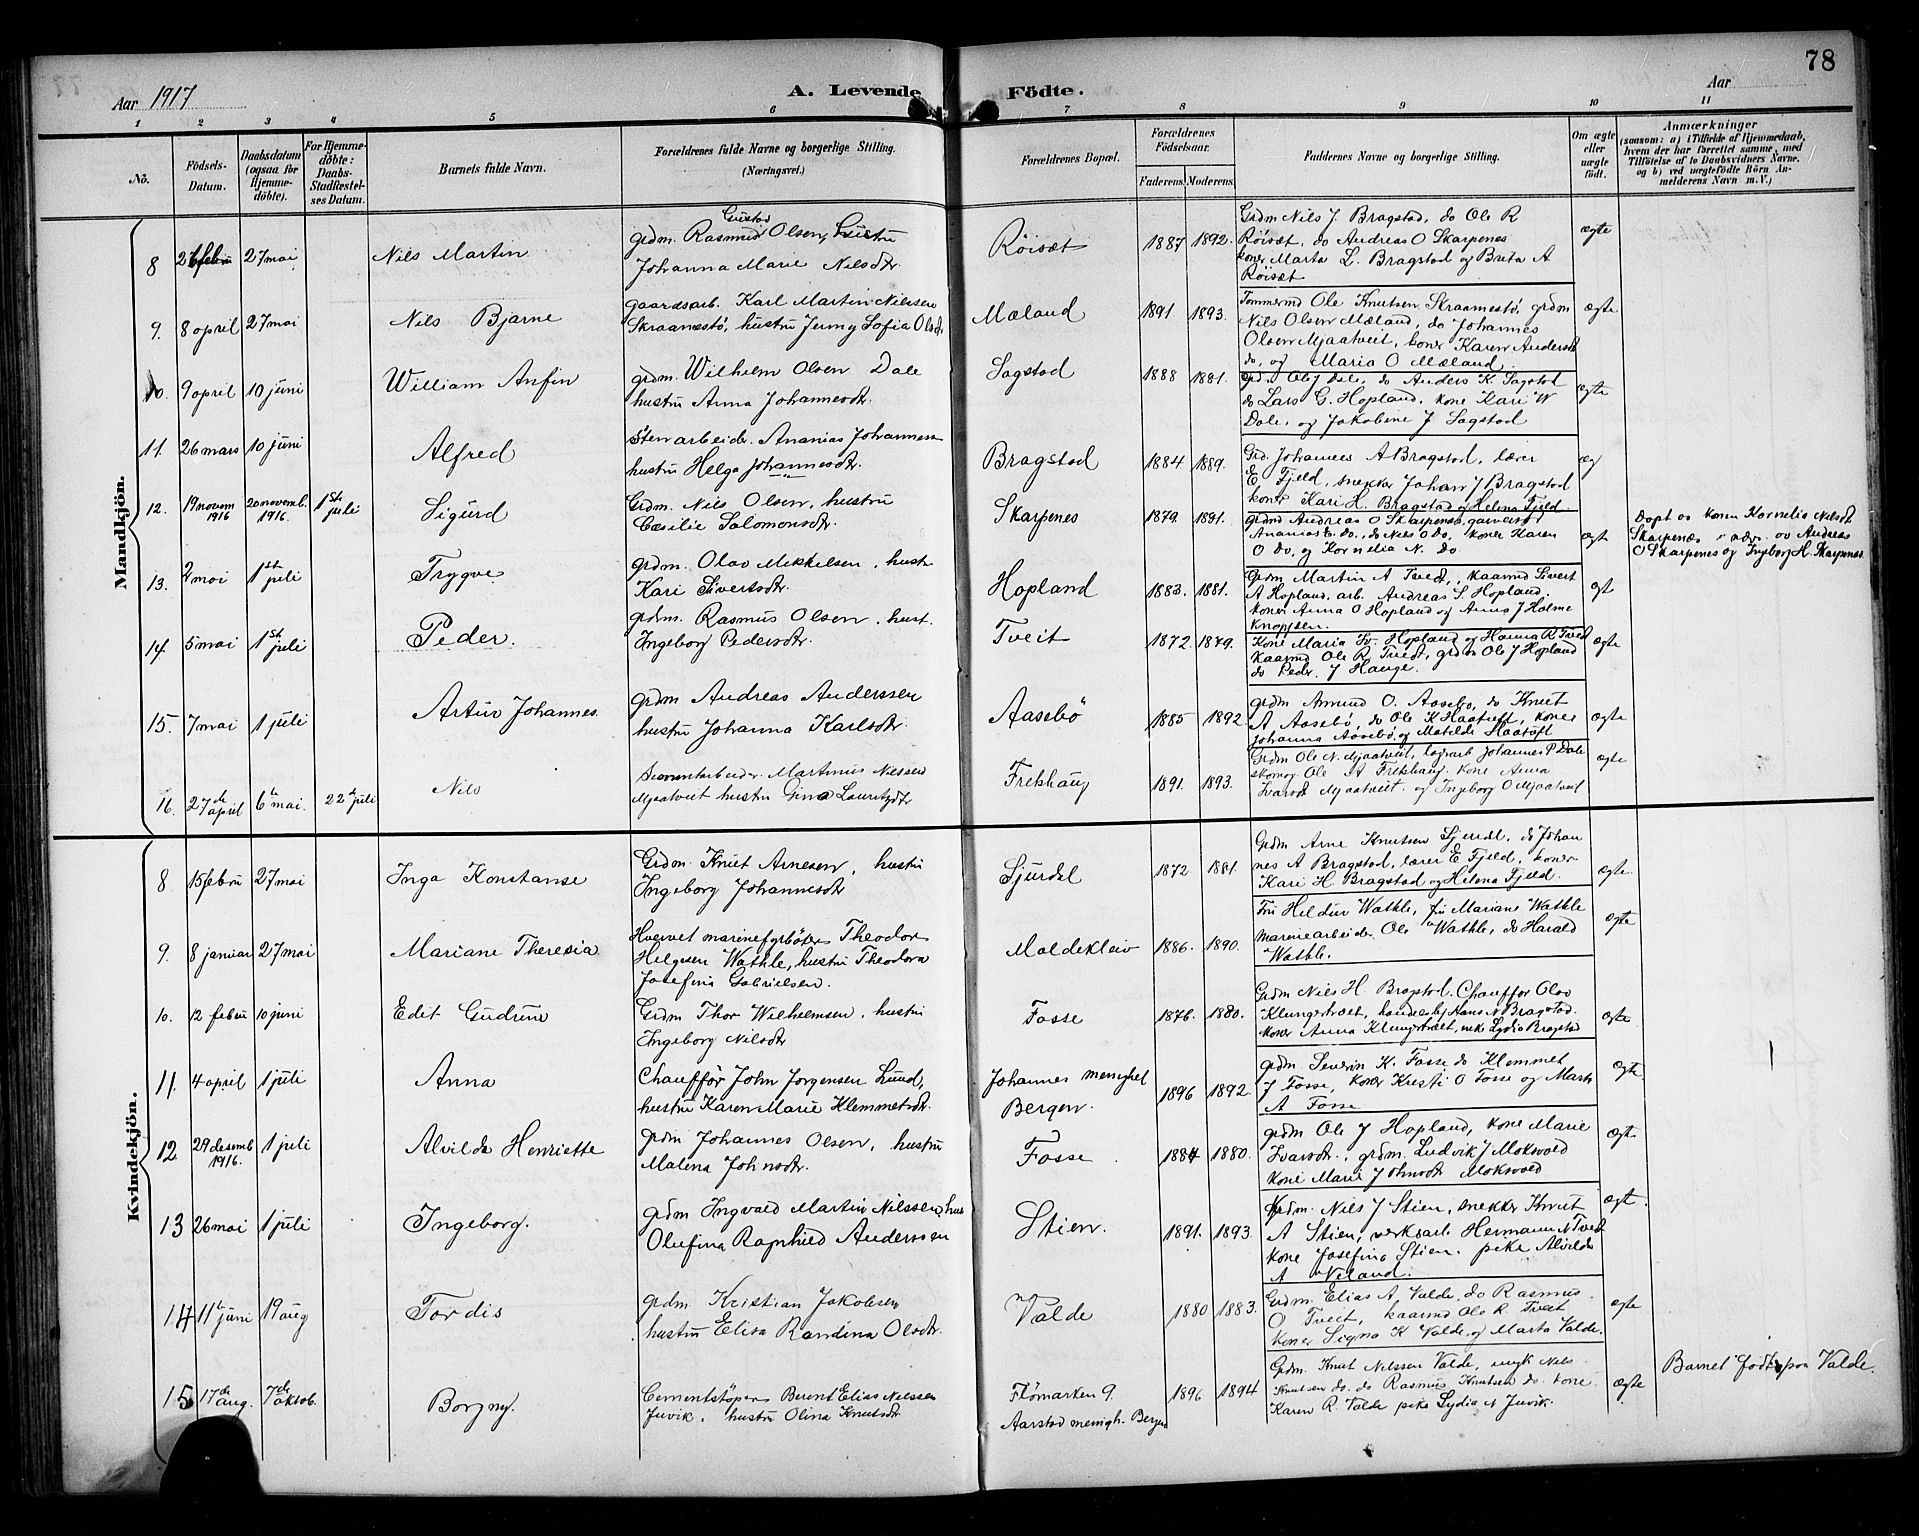 78
Aar 1917
A. Levende Födte.
Aar
1 2 3 4 5 6 7 8 9 10 11
No.
Födsels-Datum.
Daabsdatum (ogsaa for Hjemmedöbte).
For Hjemmedöbte: Daabs-Stadfestelses Datum.
Barnets fulde Navn.
Forældrenes fulde Navne og borgerlige Stilling. (Næringsvei.)
Forældrenes Bopæl.
Forældrenes Födselsaar.
Faderens. Moderens.
Faddernes Navne og borgerlige Stilling.
Om ægte eller uægte födt.
Anmærkninger
(saasom: a) i Tilfælde af Hjemmedaab, hvem der har forrettet samme, med Tilföielse af to Daabsvidners Navne. og b) ved uægtefödte Börn Anmelderens Navn m.V.)
Mandkjön.
8 27 mai
Nils Martin
Gustad
grdm. Rasmus Olsen, hustru
Johanna Marie Nilsdtr
Röisæt
1887 1892.
Grdm Nils J. Bragstad, do Ole R
Röisæt, do Andreas O Skarpenes
koner Marta L. Bragstad og Brita A
Röisæt
ægte
9. 8 april 27 mai
Nils Bjarne
gaardsarb. Karl Martin Nilssen
Skraamestö, hustru Jenny Sofia Olsdtr
Mæland
1891 1893.
Tömmermd Ole Knutsen Skraamestö, grdm
Nils Olsen Mæland, do Johannes
Olsen Mjaatveit, koner Karen Andersdtr
do, og Maria O Mæland.
ægte
10. 9 april 10 juni
William Anfin
grdm. Wilhelm Olsen Dale
hustru Anna Johannesdtr.
Sagstad
1888 1881.
grd. Ole J Dale, do Anders K Sagstad
do Lars G. Hopland, kone Kari W
Dale, og Jakobine J Sagstad
ægte
11. 26 mars 10 juni
Alfred
Stenarbeider. Ananias Johannessen
hustru Helga Johannesdtr.
Bragstad
1884 1889.
Grd. Johannes A Bragstad, lærer
E Fjeld, snekker Johan J Bragstad
koner Kari H. Bragstad og Helena Fjeld.
æg
12. 19 novem 1916 20 novemb. 1916. 1st juli
Sigurd
Grdm. Nils Olsen, hustru
Cæsilie Salomonsdtr.
Skarpenes
1879. 1891.
grdmd Andreas O Skarpenes, garverst
Ananias E. do., do Nils O do, koner Karen
O do, og Kornelia N. do
ægt
Döpt av konen Kornelia Nilsdt
Skarpenes i nærv. av Andreas
O Skarpenes og Ingeborg H. Skarpenes
13. 2 mai 1st juli
Trygve
grdm. Olav Mikkelsen. hustr
Kari Sivertsdtr.
Hopland
1883. 1881.
Grdm Martin A Tvedt, kaarmd Sivert
A Hopland, arb. Andreas S. Hopland.
koner Anna O Hopland og Anna J Holme
Knopfsen.
ægt
14. 5 mai 1st juli
Peder.
grdm. Rasmus Olsen. hust.
Ingeborg Pedersdtr.
Tveit
1872. 1879.
Kone Maria Iv. Hopland og Hanna R Tvedt
Kaarmd Ole R. Tvedt, grdm Ole J Hopland
do Peder. J Hauge.
ægte
15. 7 mai 1 juli
Artur Johannes.
grdm Andreas Anderssen
hustru Johanna Karlsdtr.
Aasebö
1885 1892
grdm Amund O. Aasebö, do Knut
A Aasebö, do Ole K Haatuft, koner
Johanna Aasebö, og Matilde Haatuft
ægte
16. 27de april 6te mai. 22de juli
Nils
Martinus Nilssen
Mjaatveit hustru Gina Lauritzdtr
Frekhaug
1891. 1893.
Grdm Ole N. Mjaatveit, Johannes P Dale
skomag. Ole A Frekhaug. kone Anna
Ivarsdt Mjaatveit. og Ingeborg O Mjaatveit
ægte
Kvindekjön.
8. 15 febru 27 mai
Inga Konstanse
Grdm. Knut Arnesen, hustru
Ingeborg Johannesdtr
Sjurdal
1872 1881.
Grdm Arne Knutsen Sjurdal, do Johan
nes A Bragstad, lærer E Fjeld, koner
Kari H. Bragstad og Helena Fjeld.
ægte
9. 8 januar 27 mai
Mariane Theresia
Hvervet marinefyrböter Theodor
Helgesen Wathle, hustru Theodora
Josefina Gabrielsen.
Maldekleiv
1886. 1890.
Fru Heldur Wathle, fru Mariane Wathle
Marinearbeider Ole Wathle, do Harald
Wathle.
ægte
10. 12 febru 10 juni
Edit Gudrun
Grdm Thor Wilhelmsen, hustru
Ingeborg Nilsdtr
Fosse
1876. 1880.
Grdm Nils H. Bragstad. Chauffør Olav
Klungstvæit, handelsbj Hans N Bragstad.
koner Anna Klungstvæit, Lydia Bragstad
ægte
11 4 april 1 juli
Anna
Chauffør John Jorgensen Lund,
hustru Karen Marie Klemmetsdtr.
Johannes menighet
Bergen.
1896 1892.
grdm Severin K. Fosse do Klemmet
J Fosse, koner Kresti O Fosse og Marta
A Fosse
ægte
12 29 desemb 1916. 1 juli
Alvilde Henriette
grdm Johannes Olsen, hustru
Malena Johnsdtr.
Fosse
1884 1880.
grdm Ole J Hopland, kone Marie
Ivarsdtr., grdm. Ludvik J Mokvold
kone Marie Johnsdtr Mokvold
ægte
13 26 mai 1 juli
Ingeborg.
grdm Ingvald Martin Nilssen, hus
Olufina Ragnhild Anderssen
Stien.
1891. 1893.
Grdm. Nils J Stien, snekker Knut
A Stien, verksarb. Hermann N Tvedt
kone Josefina Stien. pike Alvilde
A Veland.
ægte.
14 11te juni 19 aug
Tordis
grdm. Kristian Jakobsen
hustru Elisa Randina Olsdtr.
Valde
1880 1883.
Grdm. Elias A. Valde, do Rasmus
O Tveit, kaarmd Ole R. Tveit
koner Signa K Valde, og Marta Valde.
ægte
15 17de aug. 7de oktob.
Borgny.
Cementstöper Berent Elias Nilssen
Juvik. hustru Olina Knutsdtr
Flömarken 9.
Aarstad menigh. Bergen
1896 1894
Grdm. Knut Nilssen Valde, ungk Nils
Knutsen do. do Rasmus Knutsen do. kone
Karen R. Valde pike Lydia N Juvik.
ægte
Barnet födt paa Valde.